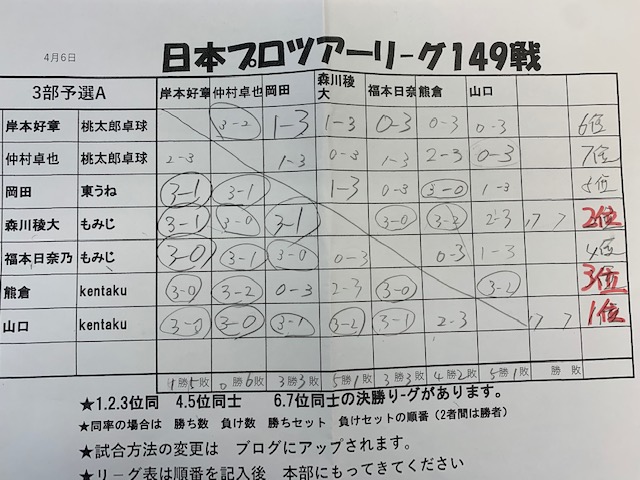 4月6日
日本プロツアーリ-グ149戦
3部予選A 岸本好章 仲村卓也 岡田 森川稜大 福本日奈 熊倉 山口
岸本好章 桃太郎卓球 3-2 1-3 1-3 0-3 0-3 0-3 6位
仲村卓也 桃太郎卓球 2-3 1-3 0-3 1-3 2-3 0-3 7位
岡田 東うね 3-1 3-1 1-3 0-3 3-0 1-3 5位
森川稜大 もみじ 3-1 3-0 3-1 3-0 3-2 2-3 2位
福本日奈乃 もみじ 3-0 3-1 3-0 0-3 0-3 1-3 4位
熊倉 kentaku 3-0 3-2 0-3 2-3 3-0 3-2 3位
山口 kentaku 3-0 3-0 3-1 3-2 3-1 2-3 1位
1勝5敗 0勝6敗 3勝3敗 5勝1敗 3勝3敗 4勝2敗 5勝1敗 勝 敗
★1.2.3位同 4.5位同士 6.7位同士の決勝がり-グがあります。
★同率の場合は 勝ち数 負け数 勝ちセット 負けセットの順番(2者間は勝者)
★試合方法の変更は ブログにアップされます。
★リ-グ表は順番を記入後 本部にもってきてください